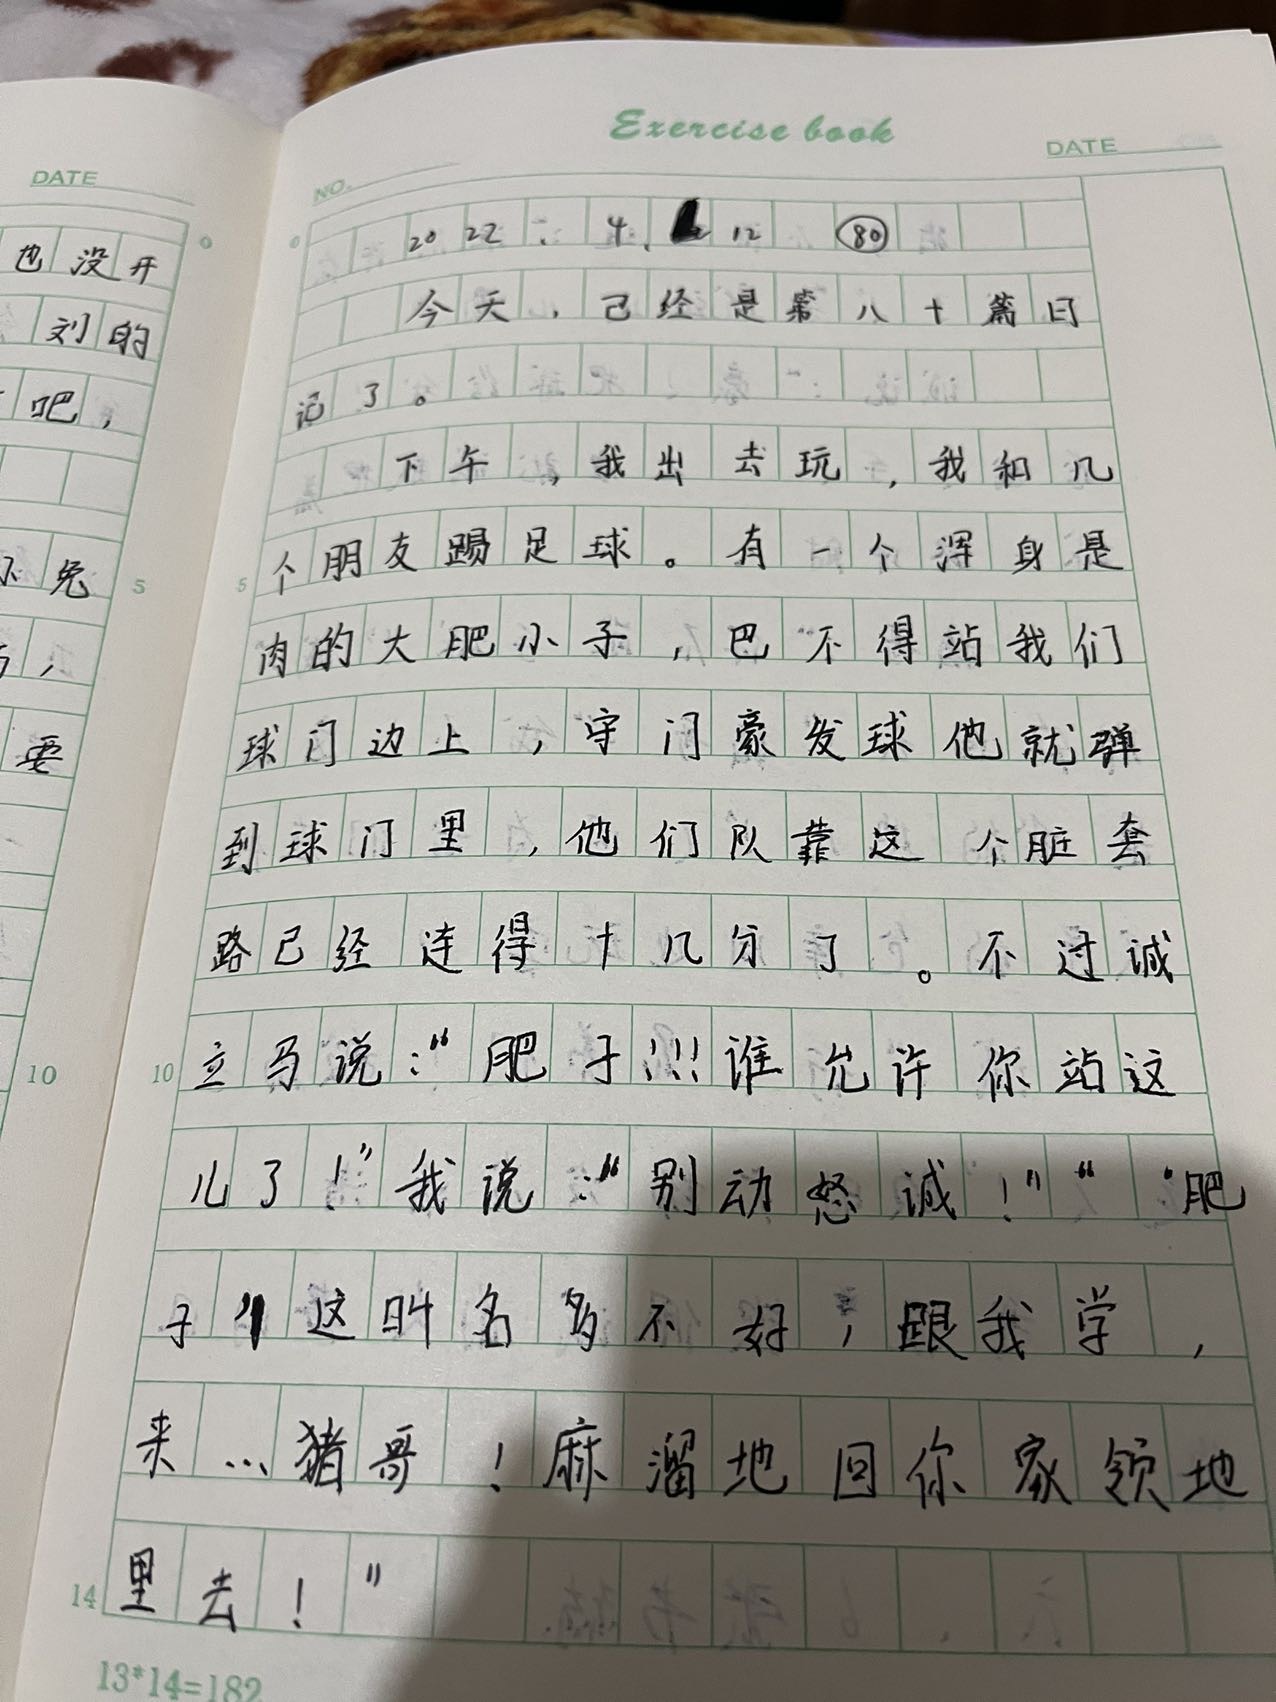 Exercise book
DATE
NO.
DATE
也没开
刘的
吧，
兔
要
5
10
2022. 4. 12 80
今天，己经是第八十篇日
记了。
下午，我出去玩，我和几
个朋友踢足球。有一个浑身是
5
肉的大肥小子，巴不得站我们
球门边上，守门豪发球他就弹
到球门里，他们队靠这个脏套
路已经连得十几分了。不过诚
10
立马说：“肥子!!!谁允许你站这
儿了!”我说：“别动怒诚!”“肥
子这叫名多不好，跟我学，
来…猪哥!麻溜地回你家领地
14
里去!”
13*14=182